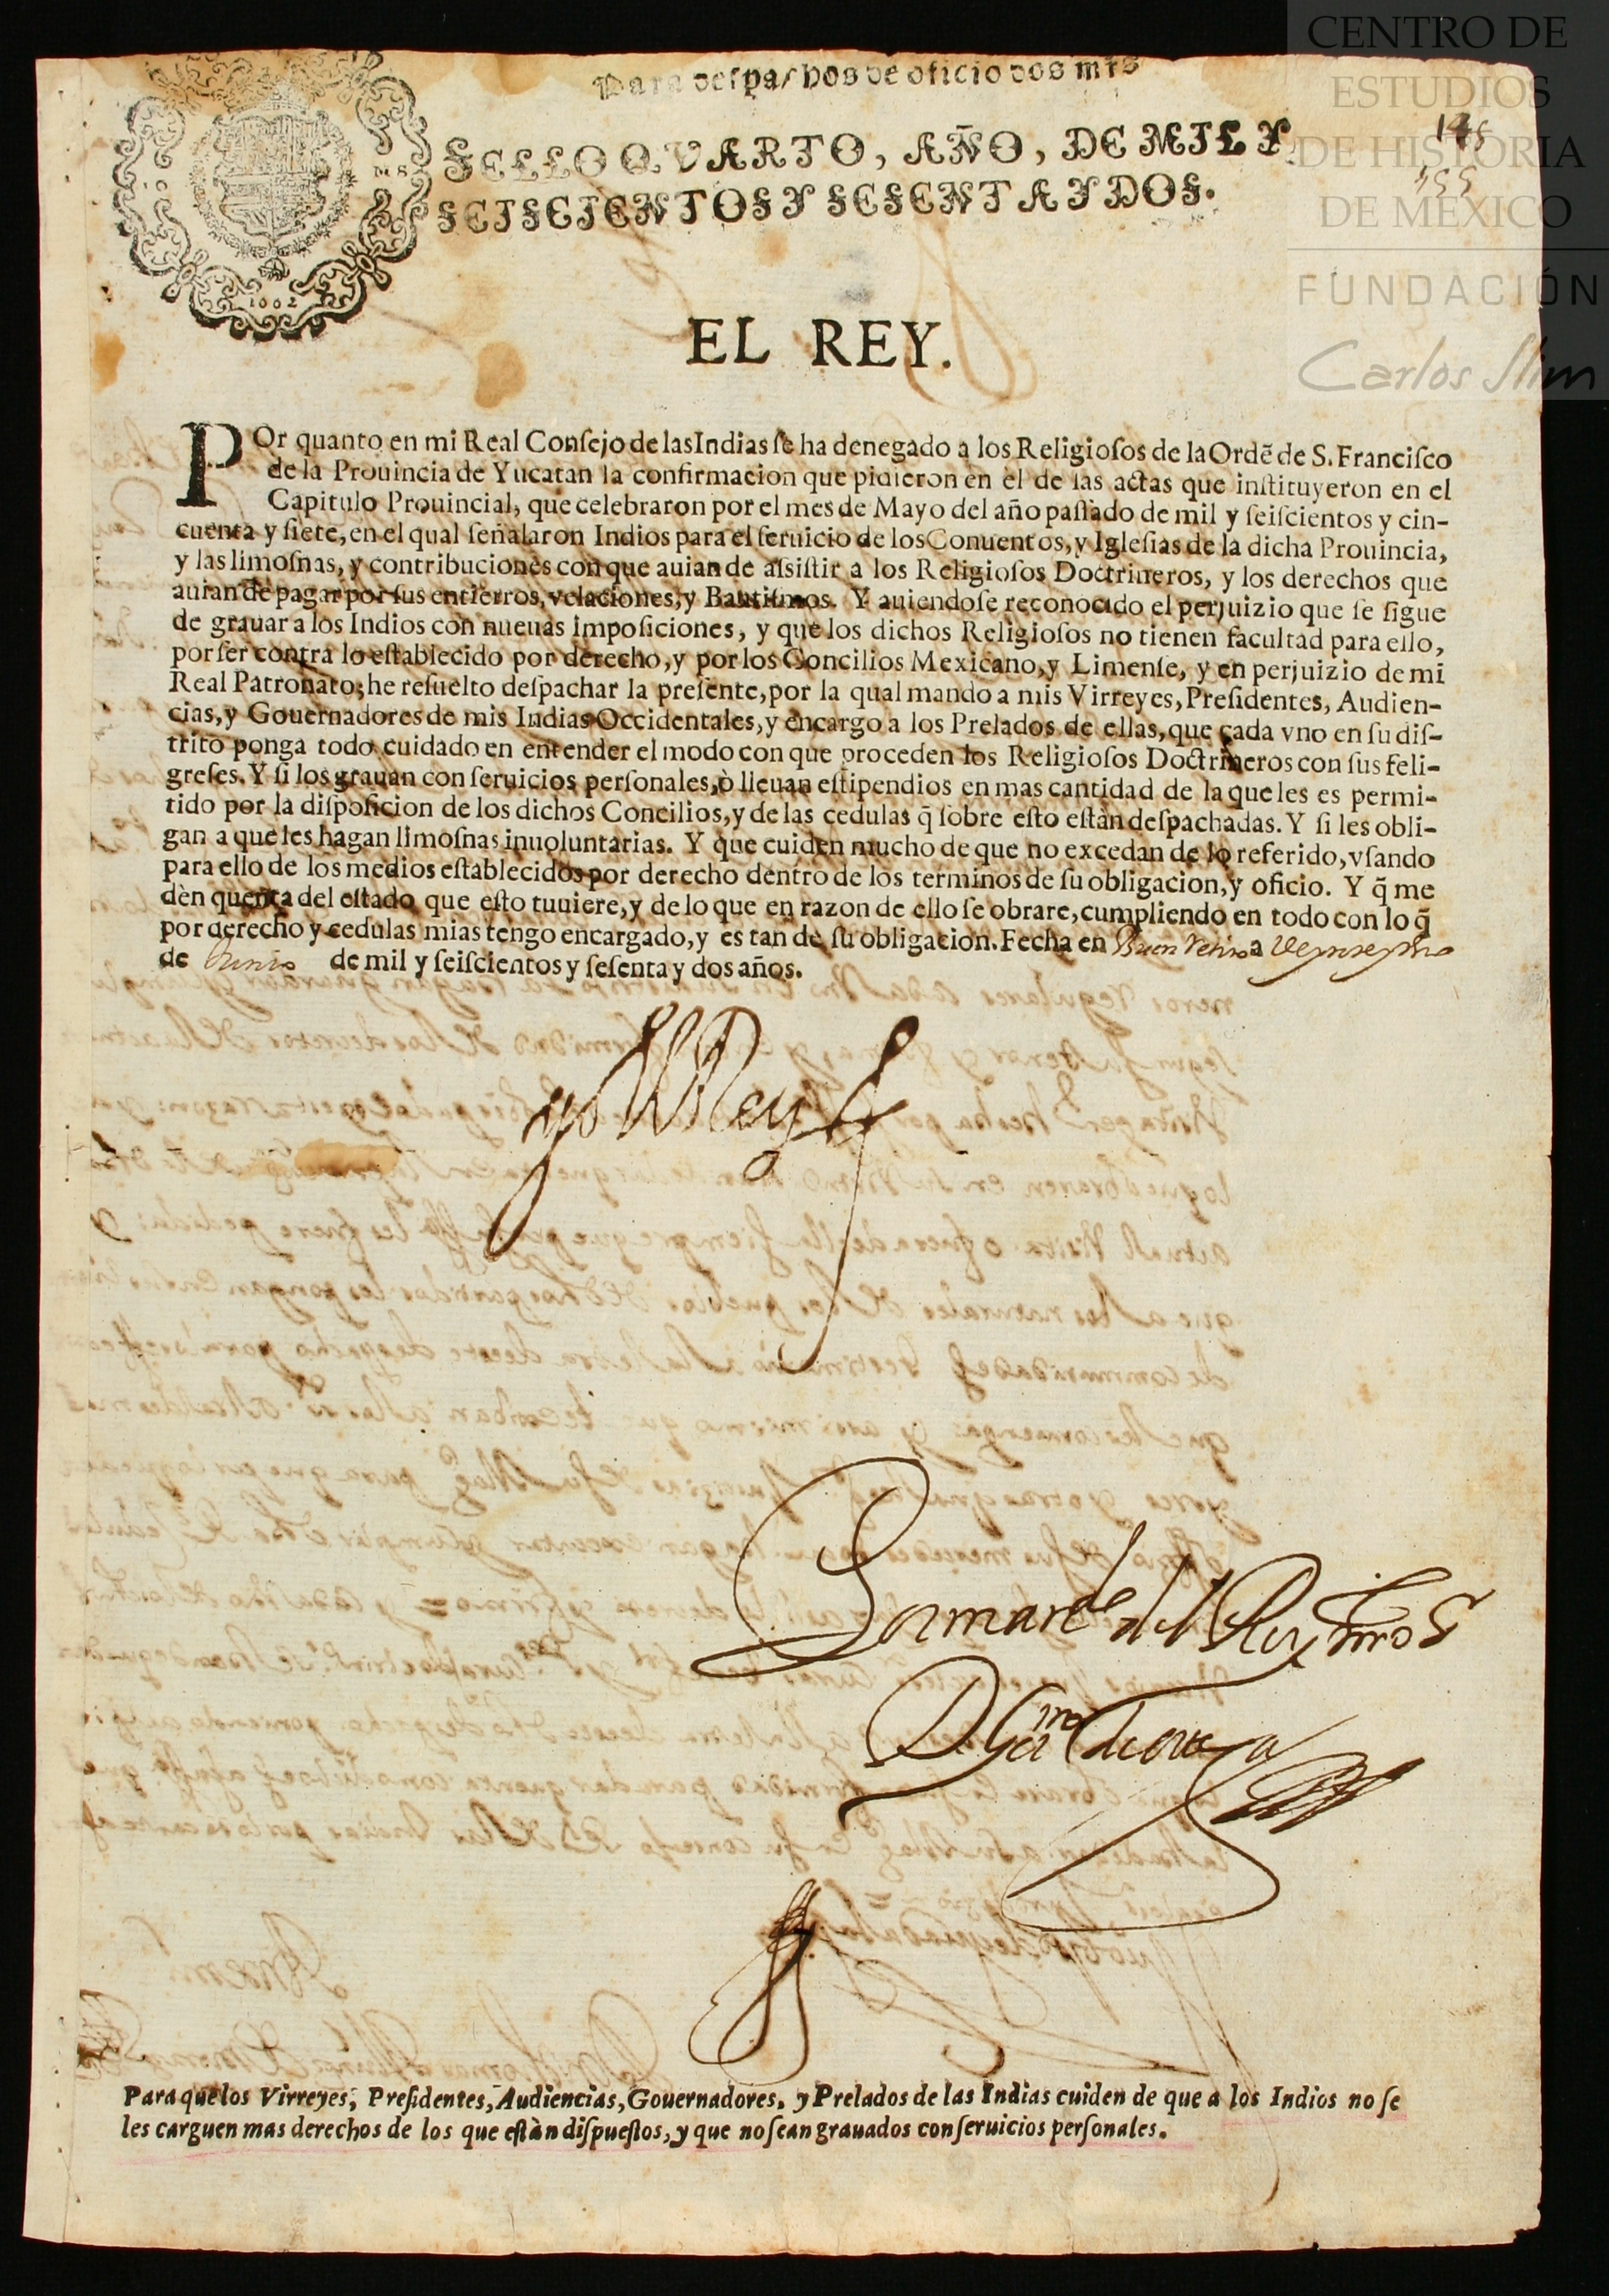 CENTRO DE
ESTUDIOS
DE HISTORIA
DE MÉXICO
FUNDACIÓN
Carlos Slim
Para despachos de oficio dos mrs
145
155
SELLO QVARTO, AÑO, DE MIL Y
SEISCIENTOS Y SESENTA Y DOS.
1662
EL REY.
POr quanto en mi Real Conſejo de las Indias ſe ha denegado a los Religioſos de la Ordẽ de S. Franciſco
de la Prouincia de Yucatan la confirmacion que pidieron en èl de las actas que inſtituyeron en el
Capitulo Prouincial, que celebraron por el mes de Mayo del año paſſado de mil y ſeiſcientos y cin-
cuenta y ſiete, en el qual ſeñalaron Indios para el ſeruicio de los Conuentos, y Igleſias de la dicha Prouincia,
y las limoſnas, y contribuciones con que auian de aſsiſtir a los Religioſos Doctrineros, y los derechos que
auian de pagar por ſus entierros, velaciones, y Bautiſmos. Y auiendoſe reconocido el perjuizio que ſe ſigue
de grauar a los Indios con nueuas impoſiciones, y que los dichos Religioſos no tienen facultad para ello,
por ſer contra lo eſtablecido por derecho, y por los Concilios Mexicano, y Limenſe, y en perjuizio de mi
Real Patronato; he reſuelto deſpachar la preſente, por la qual mando a mis Virreyes, Preſidentes, Audien-
cias, y Gouernadores de mis Indias Occidentales, y encargo a los Prelados de ellas, que cada vno en ſu diſ-
trito ponga todo cuidado en entender el modo con que proceden los Religioſos Doctrineros con ſus feli-
greſes. Y ſi los grauan con ſeruicios perſonales, ò lleuan eſtipendios en mas cantidad de la que les es permi-
tido por la diſpoſicion de los dichos Concilios, y de las cedulas q̃ ſobre eſto eſtàn deſpachadas. Y ſi les obli-
gan a que les hagan limoſnas inuoluntarias. Y que cuiden mucho de que no excedan de lo referido, vſando
para ello de los medios eſtablecidos por derecho dentro de los terminos de ſu obligacion, y oficio. Y q̃ me
dèn quenta del eſtado que eſto tuuiere, y de lo que en razon de ello ſe obrare, cumpliendo en todo con lo q̃
por derecho y cedulas mias tengo encargado, y es tan de ſu obligacion. Fecha en Buen Retiro a
de Junio de mil y ſeiſcientos y ſeſenta y dos años.
yo el Rey
Por mandº del Rey nrõ S
Para que los Virreyes, Preſidentes, Audiencias, Gouernadores, y Prelados de las Indias cuiden de que a los Indios no ſe
les carguen mas derechos de los que eſtàn diſpueſtos, y que no ſean grauados con ſeruicios perſonales.